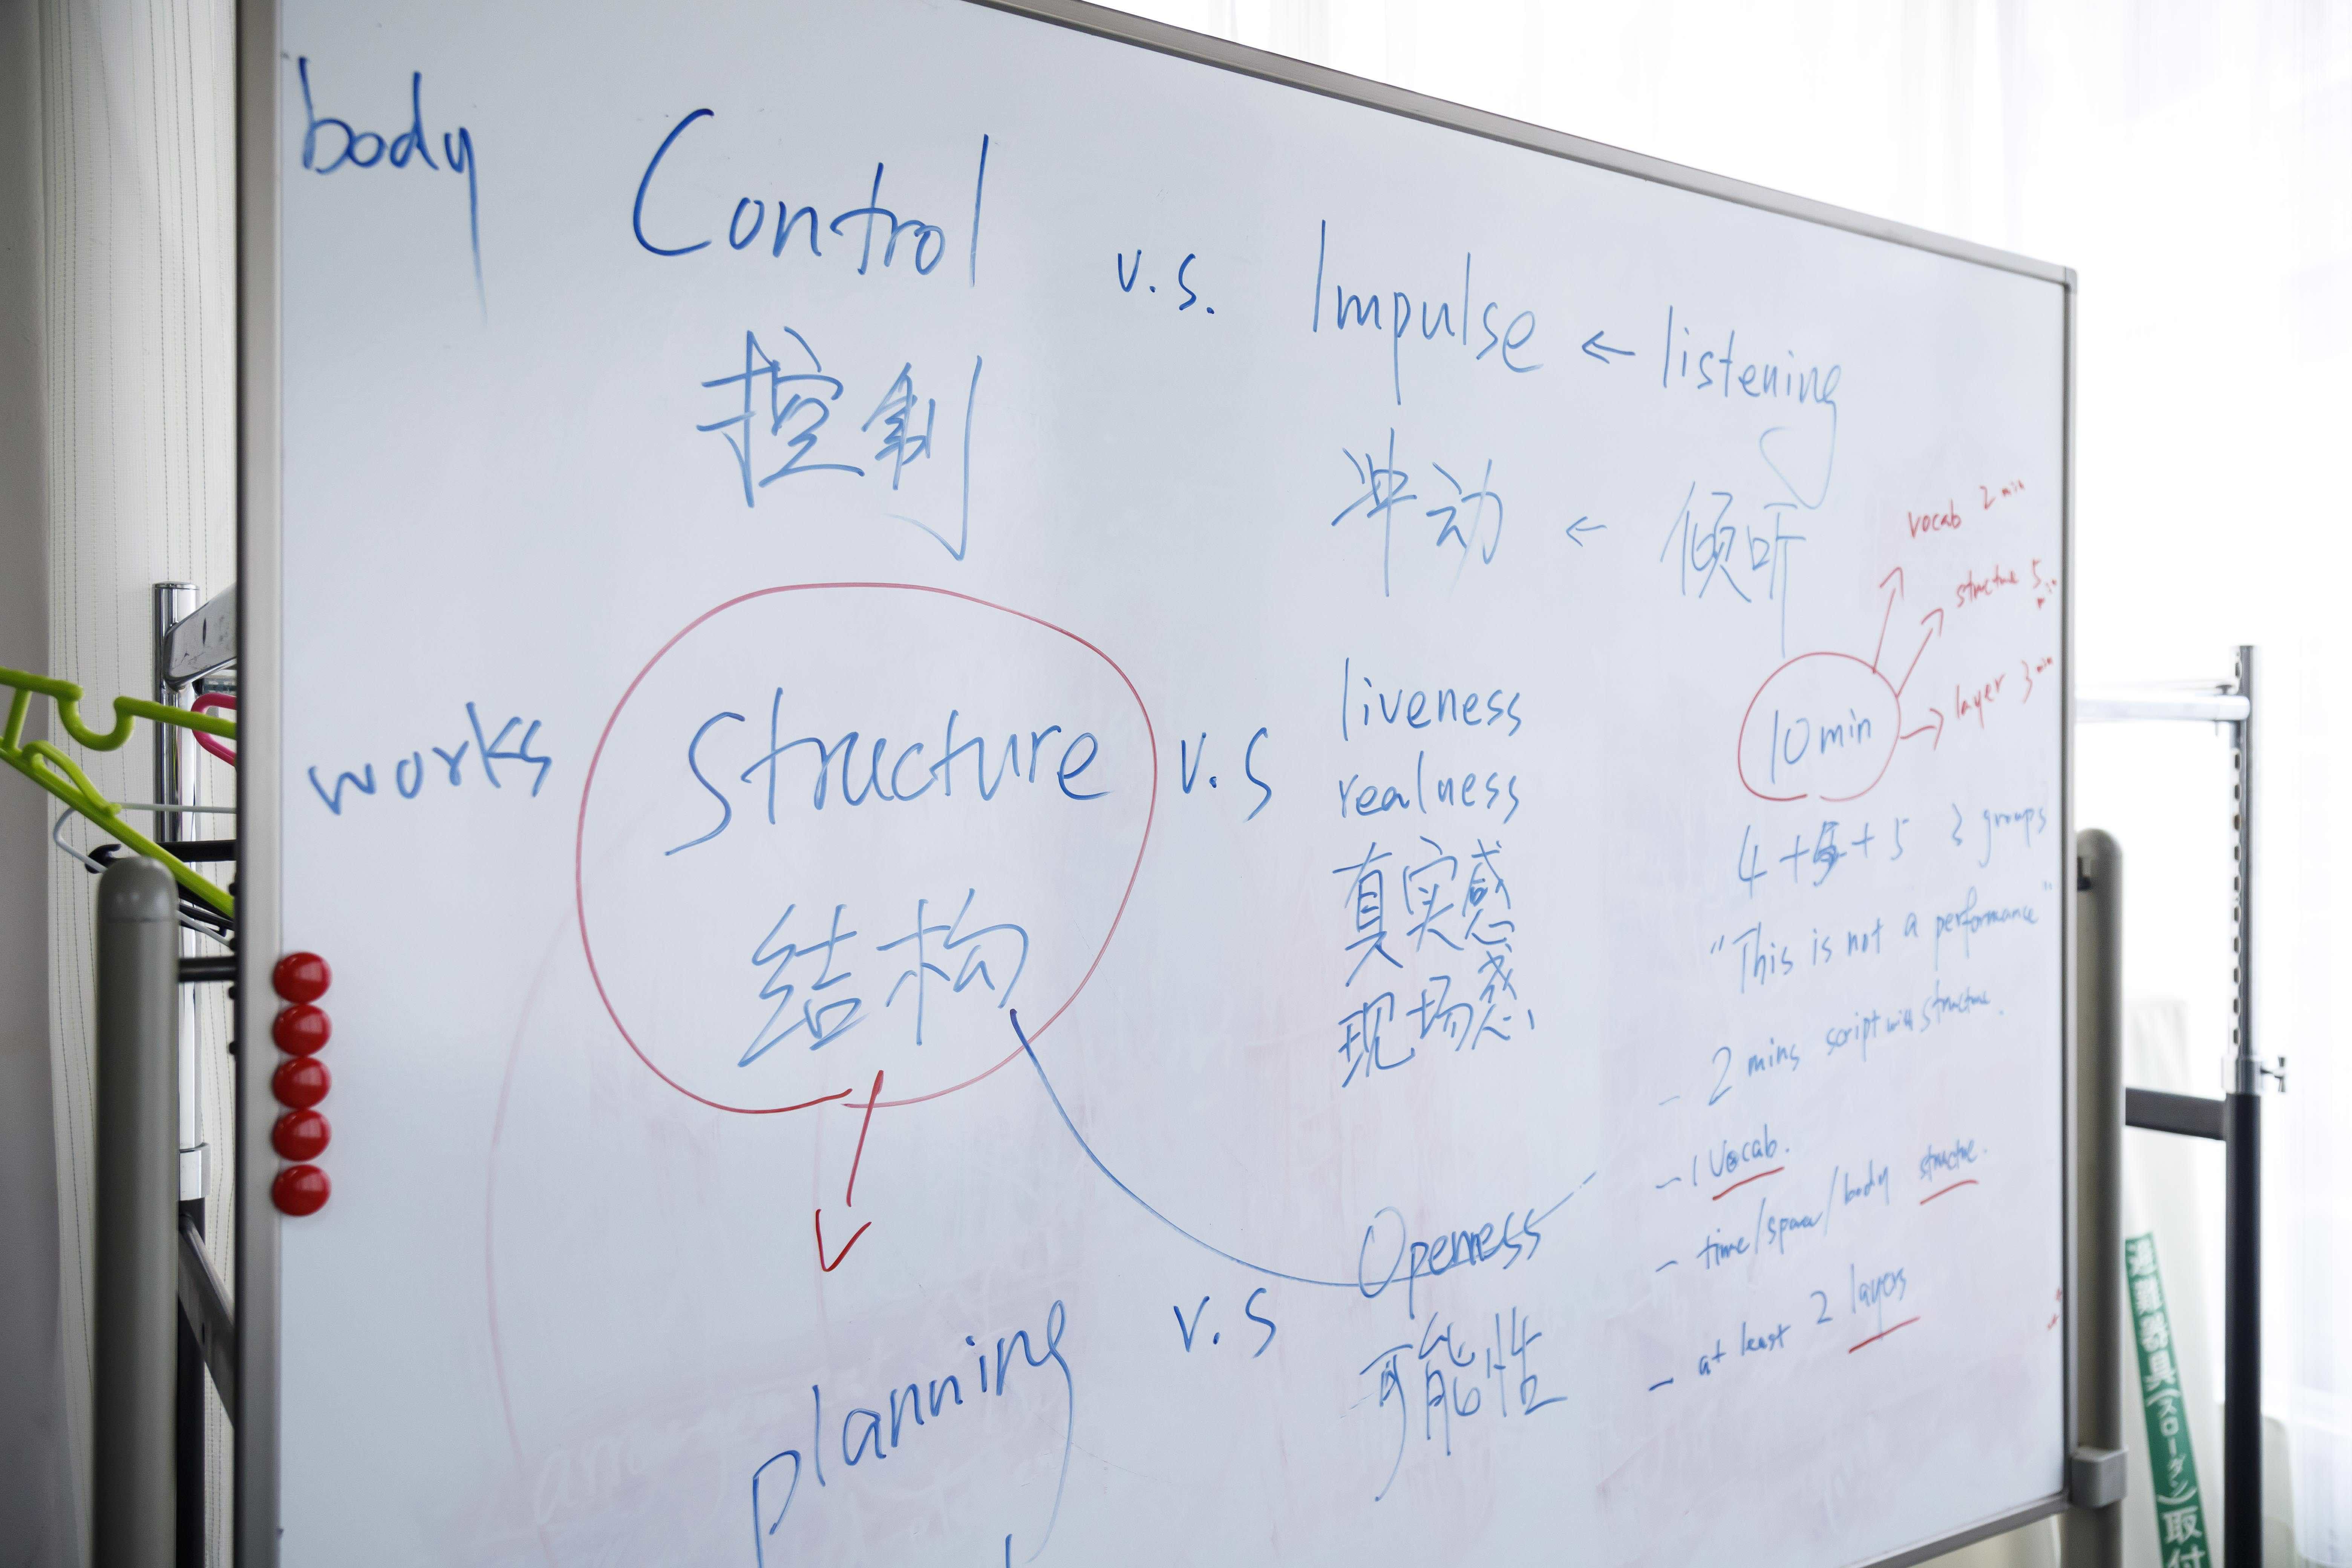 body
Control v.s. Impulse ← listening
控制 冲动 ← 倾听
vocab 2 min
structure 5 min
layer 3 min
10 min
works
Structure v.s liveness
realness
结构
真实感
现场感
4 + 5 + 5 3 groups
"This is not a performance"
- 2 mins script with structure.
- 1 Vocab.
- time/space/body structure.
- at least 2 layers
planning v.s Openness
可能性
具(スローダン)取付